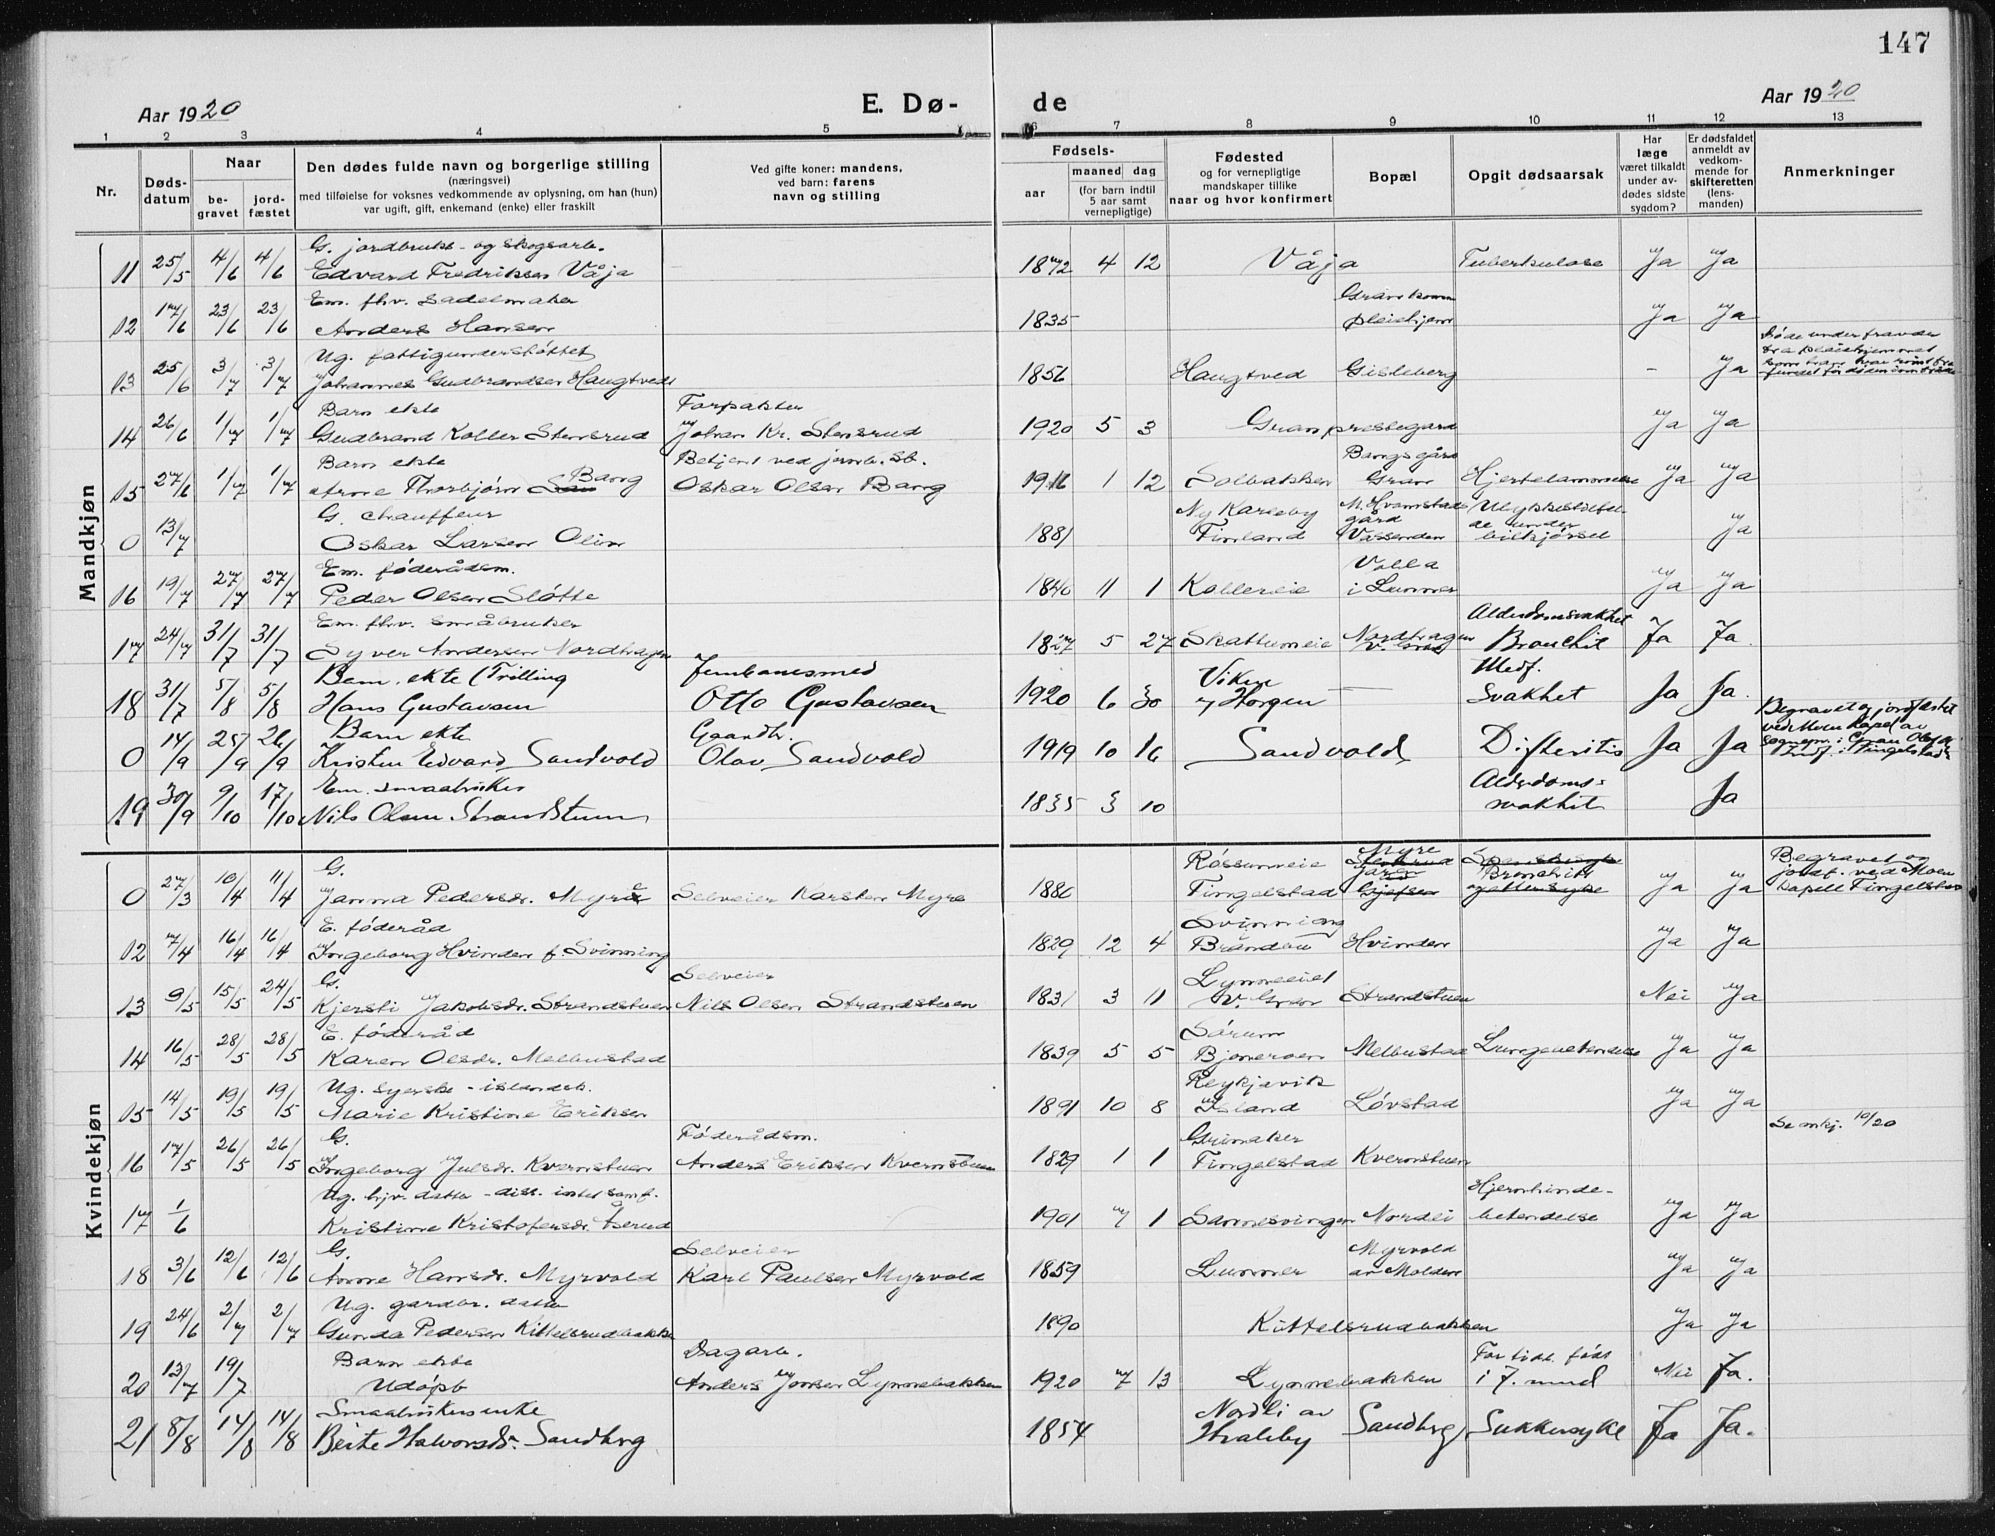 147
Aar 1920
E. Dø-
de
Aar 1920
1 2 3 4 5 6 7 8 9 10 11 12 13
Nr.
Døds-
datum
Naar
be-
gravet
jord-
fæstet
Den dødes fulde navn og borgerlige stilling
(næringsvei)
med tilføielse for voksnes vedkommende av oplysning, om han (hun)
var ugift, gift, enkemand (enke) eller fraskilt
Ved gifte koner: mandens,
ved barn: farens
navn og stilling
Fødsels-
aar
maaned dag
(for barn indtil
5 aar samt
vernepligtige)
Fødested
og for vernepligtige
mandskaper tillike
naar og hvor konfirmert
Bopæl
Opgit dødsaarsak
Har
læge
været tilkaldt
under av-
dødes sidste
sygdom?
Er dødsfaldet
anmeldt av
vedkom-
mende for
skifteretten
(lens-
manden)
Anmerkninger
Mandkjøn
G. jordbruks- og skogsarb.
11 25/5 4/6 4/6 Edvard Fredriksen Våja 1872 4 12 Våja Tuberkulose Ja Ja
Em. fhv. sadelmaker Gran kom
12 17/6 23/6 23/6 Anders Hansen 1835 pleiehjem Ja Ja
Ug. fattigunderstøttet
13 25/6 3/7 3/7 Johannes Gudbrandsen Haugtvedt 1856 Haugtved Gisleberg - Ja
Barn ekte Forpakter
14 26/6 1/7 1/7 Gudbrand Koller Stensrud Johan Kr. Stensrud 1920 5 3 Gran prestegard Ja Ja
Barn ekte Betjent ved jernb. st. Bangs gård
15 27/6 1/7 1/7 Arne Thorbjørn Bang Oskar Olsen Bang 1916 1 12 Solbakken Gran Ja Ja
G. chauffeur Ny Karleby
0 13/7 Oskar Larsen Olin 1881 Finland Vassenden bilkjørsel Ja
Em. føderådsm. Volla
16 19/7 27/7 27/7 Peder Olsen Sløtte 1840 11 1 Kollereie i Lunner Ja Ja
Em. fhv. småbruker Alderdomsvakhet
17 24/7 31/7 31/7 Syver Andersen Nordhagen 1827 5 27 Skattumeie Nordhagen V. Gran Bronchit Ja Ja
Barn ekte (Trilling Jernbanesmed Viken Medf.
18 31/7 5/8 5/8 Hans Gustavsen Otto Gustavsen 1920 6 30 Horgen — svakhet Ja Ja.
Barn ekte Gaardbr. Begravet og jordfæstet
0 14/9 25/9 26/9 Kristen Edvard Sandvold Olav Sandvold 1919 10 16 Sandvold Difteritis Ja Ja ved Moen Kapel av
Em. smaabruker Alderdoms-
19 30/9 9/10 17/10 Nils Olsen Strandstuen 1835 3 10 svakhet Ja
Kvindekjøn
G. Røssumeie Myre Begravet og
0 27/3 10/4 11/4 Janna Pedersdr. Myre Selveier Karsten Myre 1880 Tingelstad Ja Ja jordf. ved Moen
kapell Tingelstad
E. føderåd Svinning
12 7/4 16/4 16/4 Ingeborg Hvinden f. Svinning 1829 12 4 Brandbu Hvinden Ja Ja
G. Selveier Lynneeiet
13 9/5 15/5 24/5 Kjersti Jakobsdr. Strandstuen Nils Olsen Strandstuen 1831 3 11 V. Gran Strandstuen Nei Ja
E. føderåd Sørum
14 16/5 28/5 28/5 Karen Olsdr. Melbustad 1839 5 5 Bjoneroen Melbustad Lungebetendelse Ja Ja
Ug. syerske - islandsk. Reykjavik
15 14/5 19/5 19/5 Marie Kristine Eriksen 1891 10 8 Island Løvstad Ja Ja
G. Føderådsm. Grinaker
16 17/5 26/5 26/5 Ingeborg Julsdr. Kvernstuen Anders Eriksen Kvernstuen 1829 1 1 Tingelstad Kvernstuen
Ug. hjv. datter - diss. intet samf. Hjernhinde-
17 1/6 Kristine Kristofersdr. Åserud 1901 7 1 Sannesvingen Nordei betendelse Ja Ja
G. Selveier Myrvold
18 3/6 12/6 12/6 Anne Hansdr. Myrvold Karl Paulsen Myrvold 1859 Lunner av Molden Ja Ja
Ug. gardbr. datter
19 24/6 2/7 2/7 Gunda Pedersen Kittelsrudbakken 1890 Kittelsrudbakken Ja Ja
Barn ekte Dagarb. For tidl. født
20 13/7 19/7 Udøpt Anders Jonsen Lynnebakken 1920 7 13 Lynnebakken i 7. mnd Nei Ja.
Smaabrukerenke Nordli av
21 8/8 14/8 14/8 Berte Halvorsdr. Sandberg 1854 Hvaleby Sandbrg Sukkersyke Ja Ja.